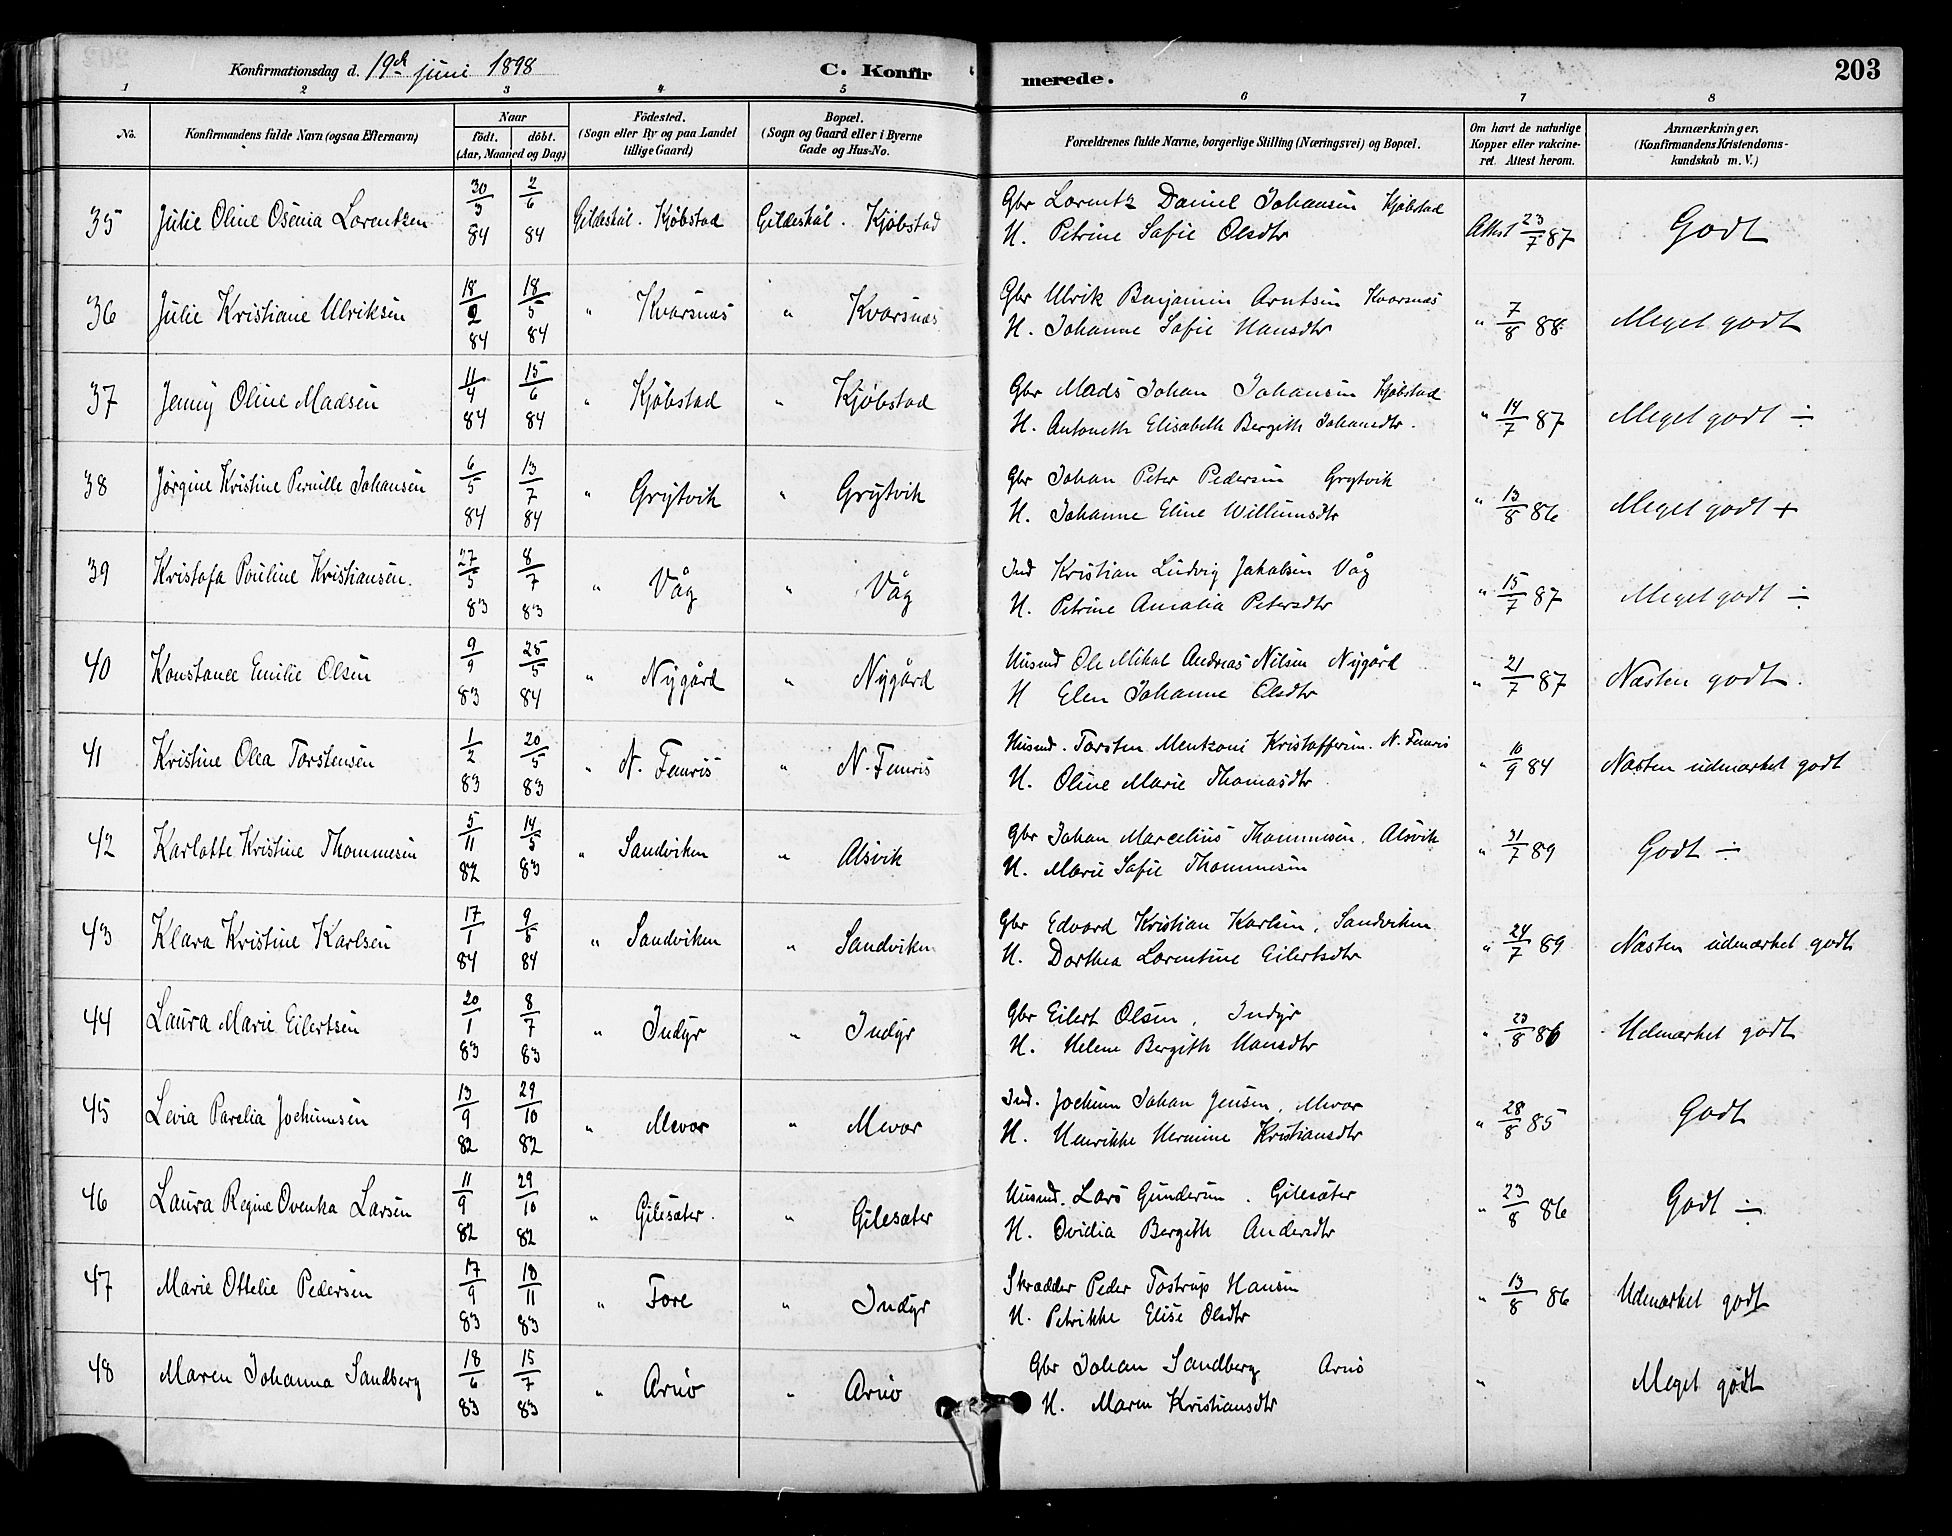 Konfirmationsdag d. 19de juni 1898 C. Konfirmerede. 203
1 2 3 4 5 6 7 8
No. Konfirmandens fulde Navn (ogsaa Efternavn) Naar födt. döbt. (Aar, Maaned og Dag) Födested. (Sogn eller By og paa Landet tillige Gaard) Bopæl. (Sogn og Gaard eller i Byerne Gade og Hus-No. Forældrenes fulde Navne, borgerlige Stilling (Næringsvei) og Bopæl. Om havt de naturlige Kopper eller vakcineret. Attest herom. Anmærkninger. (Konfirmandens Kristendomskundskab m. V.)
35 Julie Oline Osenia Lorentzen 30/3 84 2/6 84 Gildeskål. Kjøbstad Gildeskål. Kjøbstad Gbr Lorentz Daniel Johansen Kjøbstad Attest 23/7 87 Godt
H. Petrine Sofie Olsdtr
36 Julie Kristiane Ulriksen 18/2 84 18/5 84 " Kvarsnæs " Kvarsnæs Gbr Ulrik Benjamin Arntsen Kvarsnæs " 7/8 88 Meget godt
H. Johanne Sofie Hansdtr
37 Jenny Oline Madsen 11/4 84 15/6 84 " Kjøbstad " Kjøbstad Gbr Mads Johan Johansen Kjøbstad " 14/7 87 Meget godt ÷
H. Antoneth Elisabeth Bergith Johansdtr.
38 Jørgine Kristine Pernille Johansen 6/5 84 13/7 84 " Grytvik " Grytvik Gbr Johan Peter Pedersen Grytvik " 13/8 86 Meget godt +
H. Johanne Eline Williumsdtr
39 Kristofa Pouline Kristiansen. 27/5 83 8/7 83 " Våg " Våg Ind Kristian Ludvig Jakobsen Våg " 15/7 87 Meget godt ÷
H. Petrine Amalia Petersdtr
40 Konstance Emilie Olsen 9/9 83 25/5 84 " Nygård " Nygård Husmd Ole Mikal Andreas Nilsen Nygård " 21/7 87 Næsten godt.
H Elen Johanne Olsdtr
41 Kristine Olea Torstensen 1/2 83 20/5 83 " N. Femris " N. Femris Husmd. Torsten Mentzoni Kristoffersen. N. Femris " 10/9 84 Næsten udmærket godt
H. Oline Marie Thomasdtr
42 Karlotte Kristine Thommesen 5/11 82 14/5 83 " Sandviken " Alsvik Gbr Johan Marcelius Thommesen. Alsvik " 31/7 89 Godt ÷
H. Marie Sofie Thommesen
43 Klara Kristine Karlsen 17/1 84 9/5 84 " Sandviken " Sandviken Gbr Edvard Kristian Karlsen, Sandviken " 24/7 89 Næsten udmærket godt
H. Dorthea Lorentine Eilertsdtr
44 Laura Marie Eilertsen 20/1 83 8/7 83 " Indyr " Indyr Gbr Eilert Olsen, Indyr " 23/8 86 Udmærket godt
H. Helene Bergith Hansdtr
45 Levia Parelia Jochumsen 13/9 82 29/10 82 " Mevær " Mevær Ind. Jochum Johan Jensen, Mevær " 28/8 85 Godt
H. Henrikke Hermine Kristiansdtr
46 Laura Regine Ovenka Larsen 11/9 82 29/10 82 " Gilesæter. " Gilesæter Husmd. Lars Gundersen. Gilesæter " 23/8 86 Godt ÷
H. Ovidia Bergith Andersdtr
47 Marie Ottelie Pedersen 17/9 83 18/11 83 " Fore " Indyr Skrædder Peder Tostrup Hansen " 13/8 86 Udmærket godt
H. Petrikke Elise Olsdtr
48 Maren Johanna Sandberg 18/6 83 15/7 83 " Arnø " Arnø Gbr Johan Sandberg Arnø " Meget godt
H. Maren Kristiansdtr